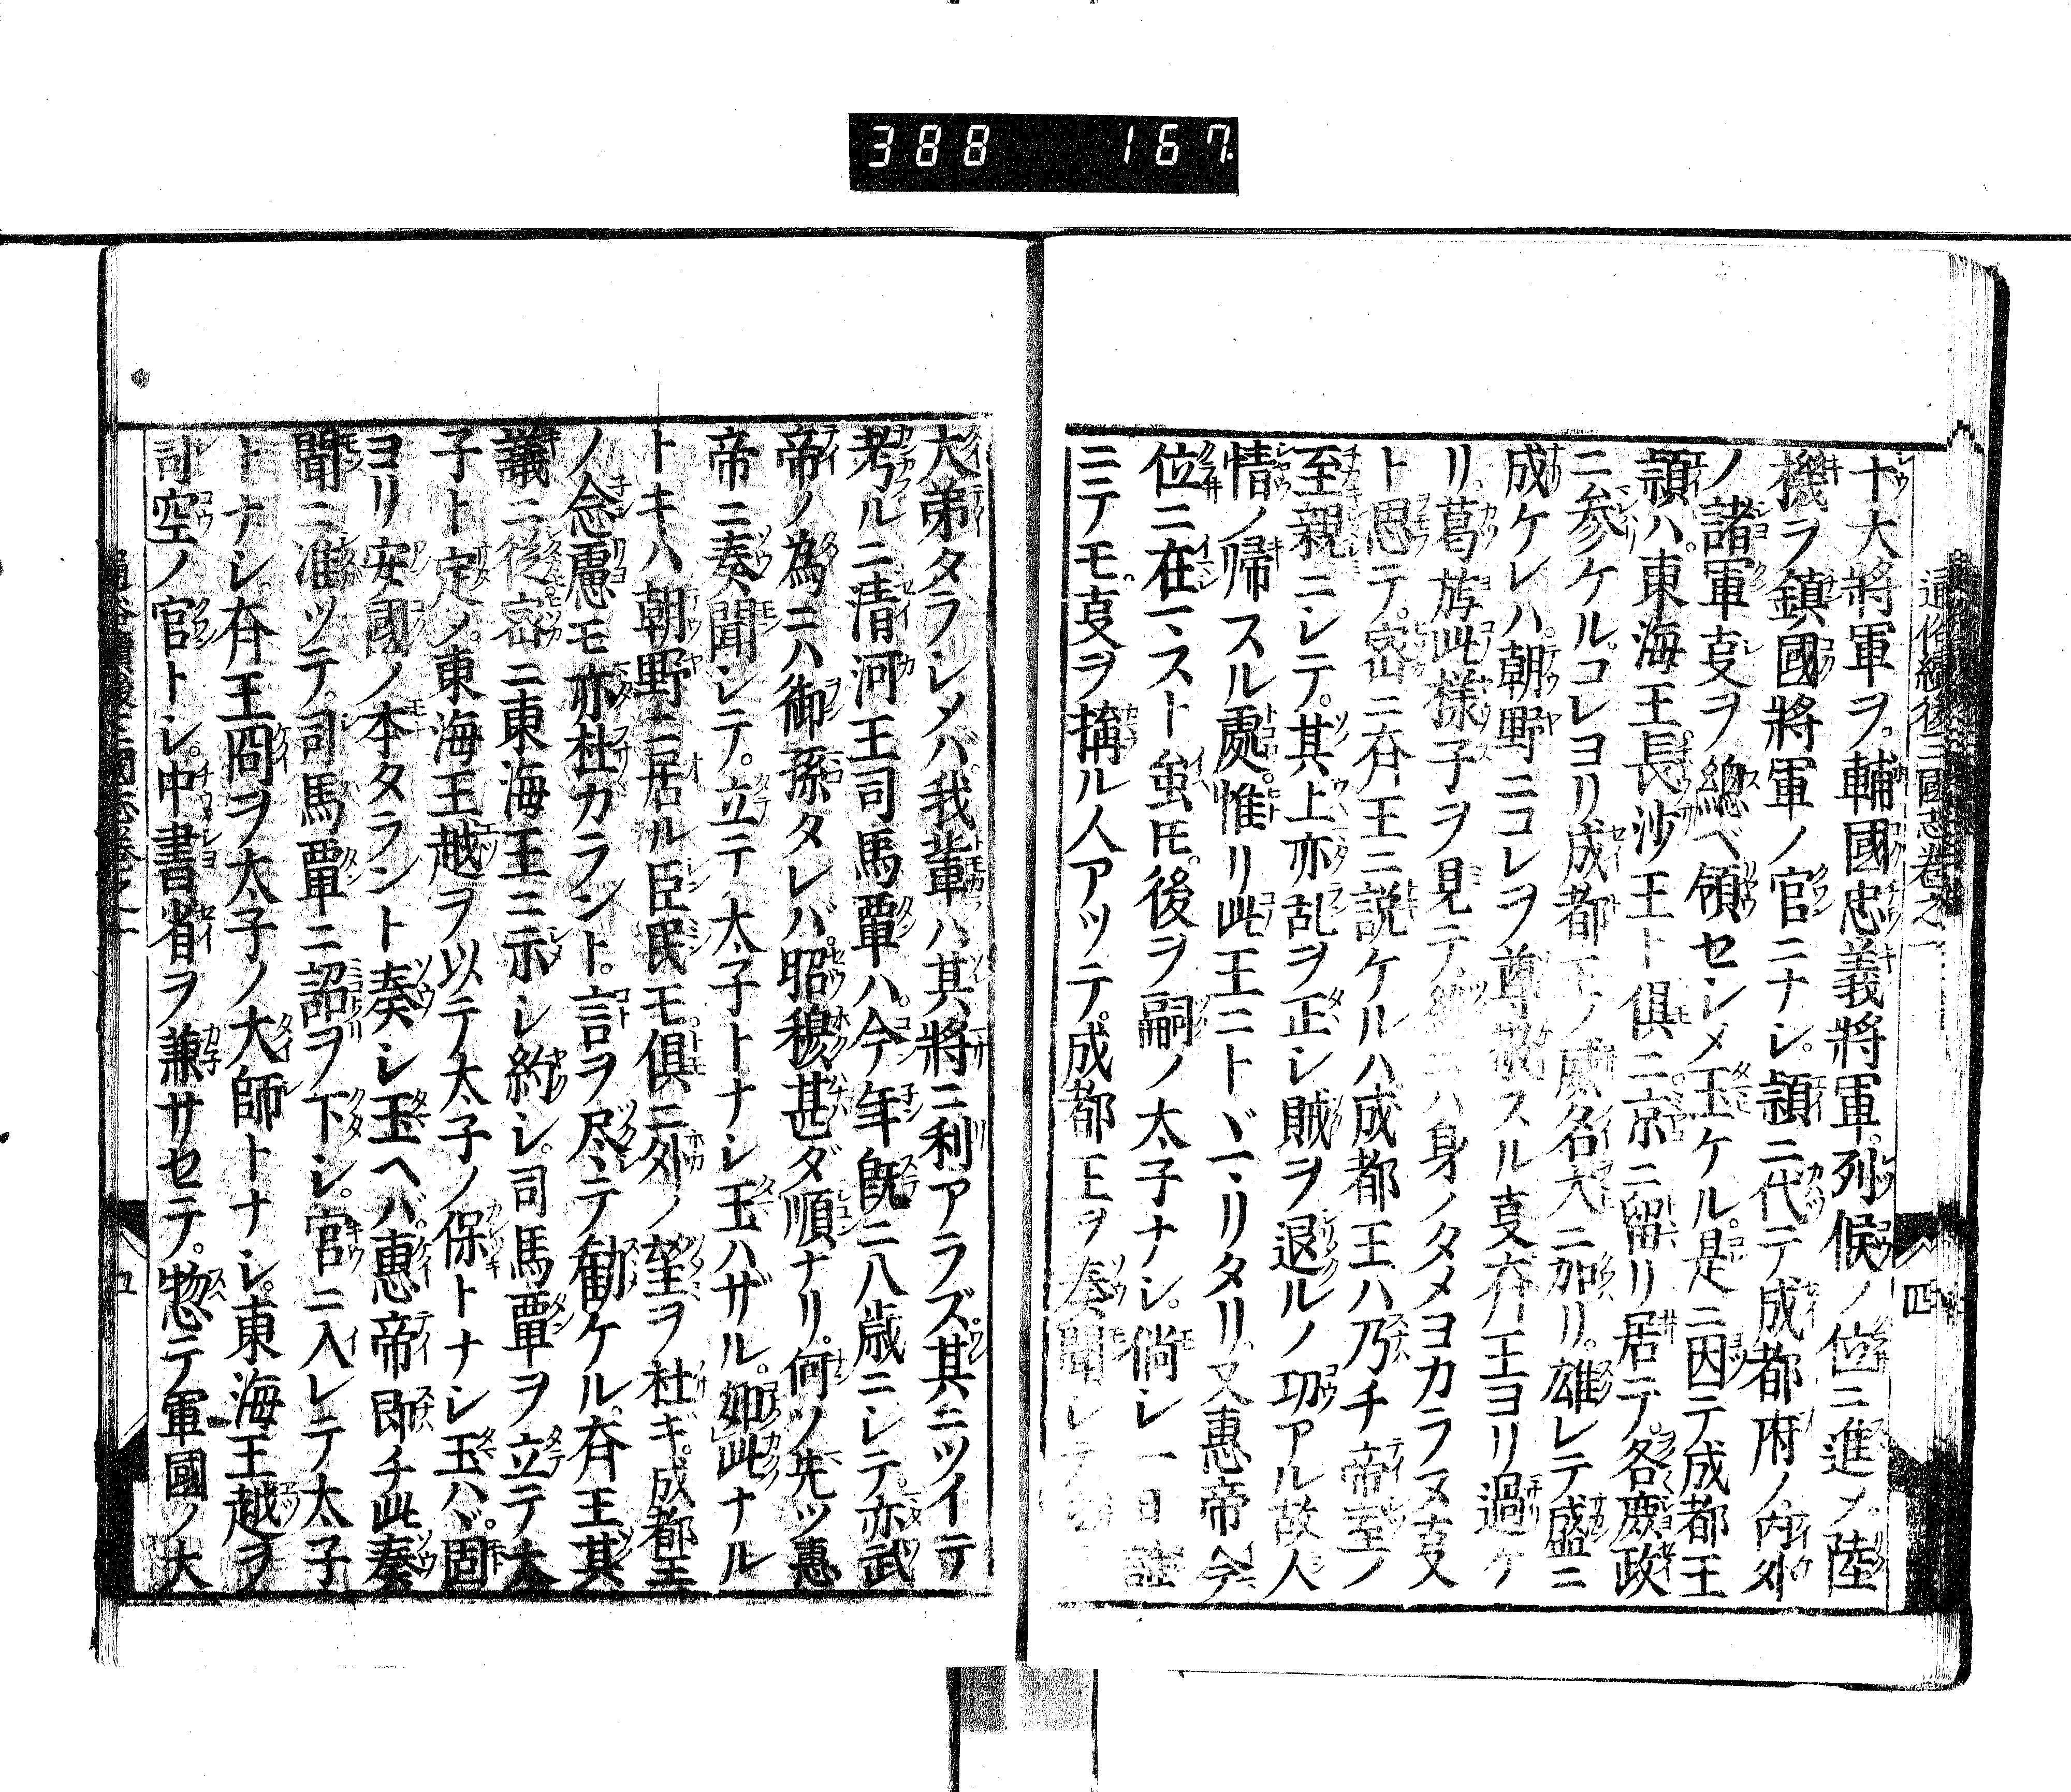 388 167
通俗續後三國志卷之一
四
十大將軍ヲ輔國忠義將軍。列候ノ位ニ進メ。陸
機ヲ鎮國將軍ノ官ニナシ。頴ニ代テ成都府ノ内外
ノ諸軍叓ヲ總ベ領セシメ玉ケル。是ニ因テ成都王
頴ハ。東海王長沙王ト俱ニ京ニ留リ居テ。各庶政
ニ參ケル。コレヨリ成都王ノ威名大ニ加リ。雄シテ盛ニ
成ケレハ。朝野ニコレヲ尊敬スル叓斉王ヨリ過ケ
リ。葛旟此樣子ヲ見テ ニハ身ノタメヨカラヌ叓
ト思テ。密ニ斉王ニ説ケルハ成都王ハ乃チ帝室ノ
至親ニシテ。其上亦乱ヲ正シ賊ヲ退ルノ功アル故人
情ノ帰スル處。惟リ此王ニトヾマリタリ。又惠帝今
位ニ在マスト虽モ。後ヲ嗣ノ太子ナシ。倘シ一日
ニテモ。叓ヲ搆ル人アツテ。成都王ヲ奏聞シテ
大弟タラシメバ我輩ハ其將ニ利アラズ。其ニツイテ
考ルニ清河王司馬覃ハ。今年既ニ八歳ニシテ。亦武
帝ノ為ニハ御孫タレバ。昭穆甚ダ順ナリ。何ソ先ツ惠
帝ニ奏聞シテ。立テ太子トナシ玉ハザル。如此ナル
トキハ朝野ニ居ル臣民モ。俱ニ外ノ望ヲ杜ギ。成都王
ノ念慮モ亦杜カラント。言ヲ尽シテ勧ケル。斉王其
議ニ從。密ニ東海王ニ示シ約シ。司馬覃ヲ立テ太
子ト定メ。東海王越ヲ以テ太子ノ保トナシ玉ハバ。固
ヨリ安國ノ本タラント奏シ玉ヘバ。惠帝即チ此奏
聞ニ准ツテ。司馬覃ニ詔ヲ下シ。宮ニ入レテ太子
トナシ。斉王冏ヲ太子ノ大師トナシ。東海王越ヲ
司空ノ官トシ。中書省ヲ兼サセテ。惣テ軍國ノ大
五